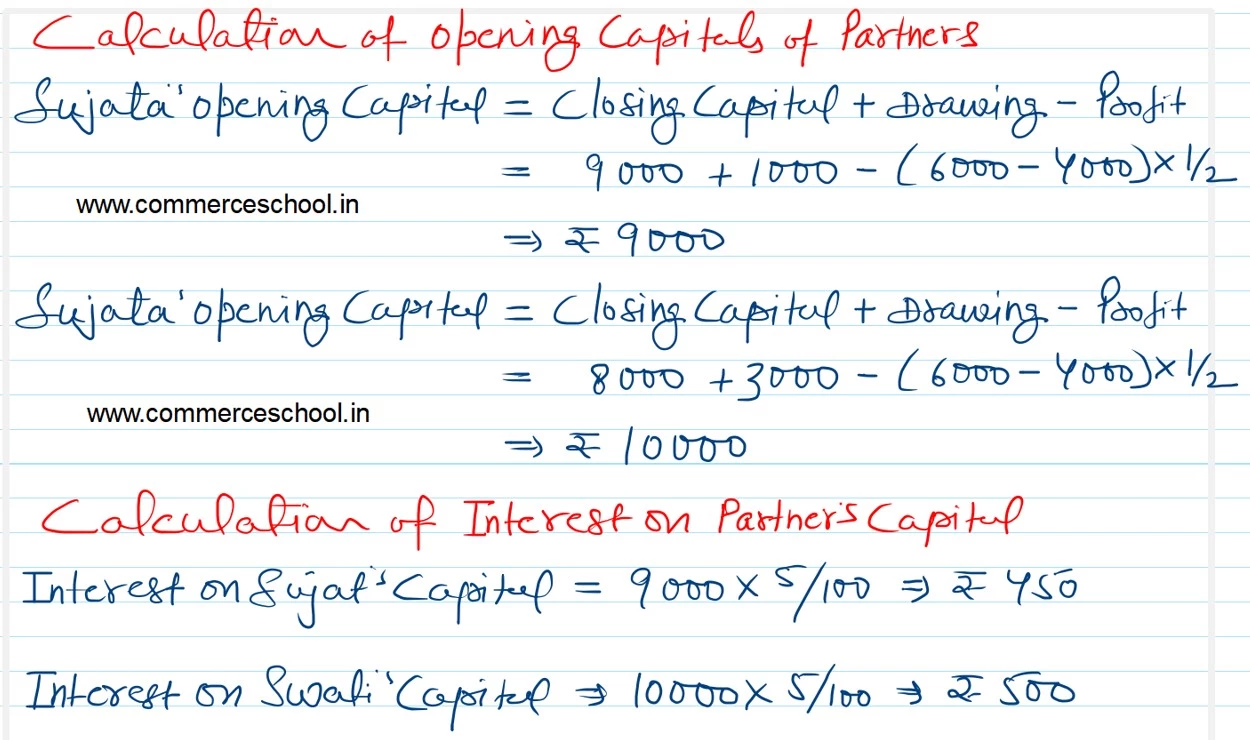 Calculation of opening Capitals of Partners
Sujata' opening Capital = Closing Capital + Drawing - Profit
= 9000 + 1000 - (6000 - 4000) × 1/2
www.commerceschool.in
⇒ ₹ 9000
Sujata' opening Capital = Closing Capital + Drawing - Profit
= 8000 + 3000 - (6000 - 4000) × 1/2
www.commerceschool.in
⇒ ₹ 10000
Calculation of Interest on Partner's Capital
Interest on Sujat's Capital = 9000 × 5/100 ⇒ ₹ 450
Interest on Swati' Capital ⇒ 10000 × 5/100 ⇒ ₹ 500